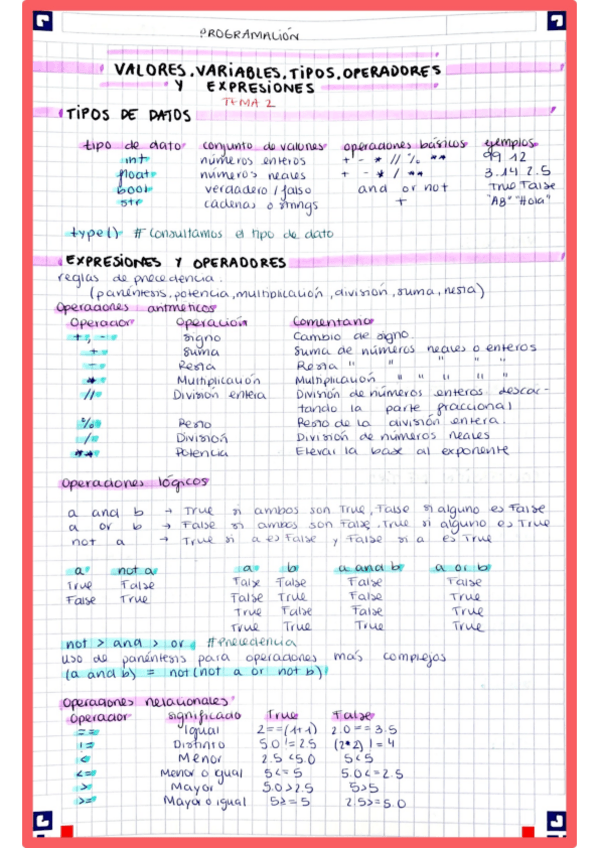 PROGRAMACIÓN
VALORES, VARIABLES, TIPOS, OPERADORES
Y EXPRESIONES
TEMA 2
TIPOS DE DATOS
tipo de dato conjunto de valores operaciones básicas ejemplos
int números enteros + - * // % ** 99 12
float números reales + - * / ** 3.14 2.5
bool verdadero / falso and or not True False
str cadenas o strings + "AB" "Hola"
type() # Consultamos el tipo de dato
EXPRESIONES Y OPERADORES
reglas de precedencia.
(paréntesis, potencia, multiplicación, división, suma, resta)
Operaciones aritméticos
Operador Operación Comentario
+, - signo Cambio de signo
+ Suma Suma de números reales o enteros
- Resta Resta " " " " "
* Multiplicación Multiplicación " " " " "
// División entera División de números enteros descar-
tando la parte fraccional
% Resto Resto de la división entera.
/ División División de números reales
** Potencia Elevar la base al exponente
Operaciones lógicos
a and b → True si ambos son True, False si alguno es False
a or b → False si ambos son False, True si alguno es True
not a → True si a es False y False si a es True
a not a a b a and b a or b
True False False False False False
False True False True False True
True False False True
True True True True
not > and > or #Precedencia
uso de paréntesis para operaciones más complejos
(a and b) = not (not a or not b)
Operaciones relacionales
Operador significado True False
== Igual 2==(1+1) 2.0==3.5
!= Distinto 5.0!=2.5 (2*2)!=4
< Menor 2.5<5.0 5<5
<= Menor o igual 5<=5 5.0<=2.5
> Mayor 5.0>2.5 5>5
>= Mayor o igual 5>=5 2.5>=5.0